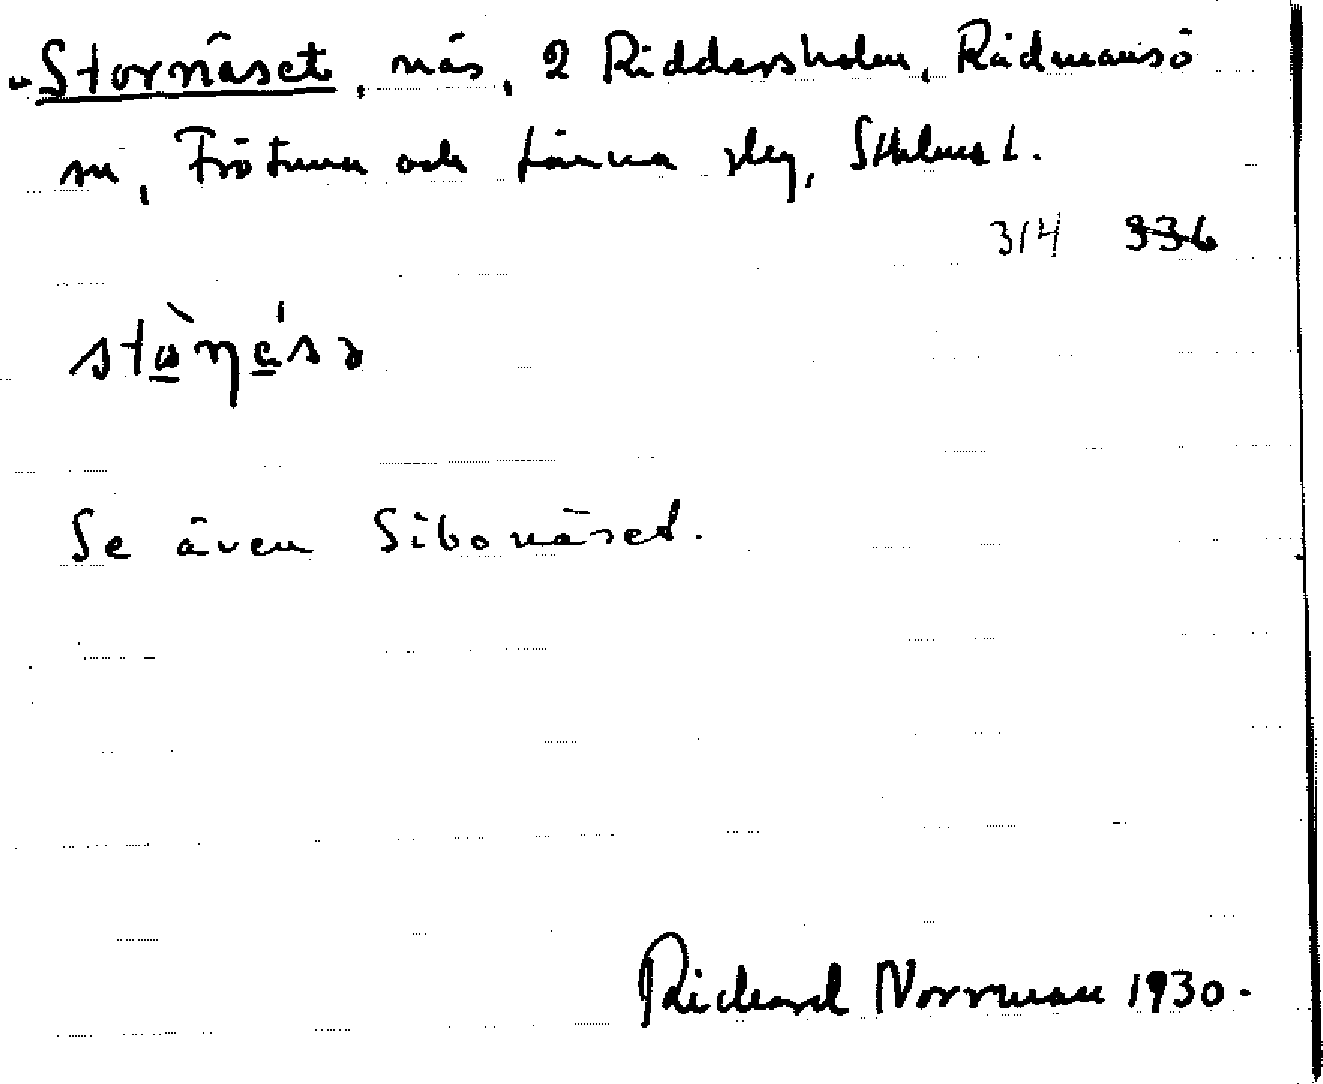 Stornäset, näs, 2 Riddersholm, Rådmansö
sn, Frötuna och Länna slg, Sthlms l.
314 336
Se även Sibonäset.
Richard Norrman 1930.